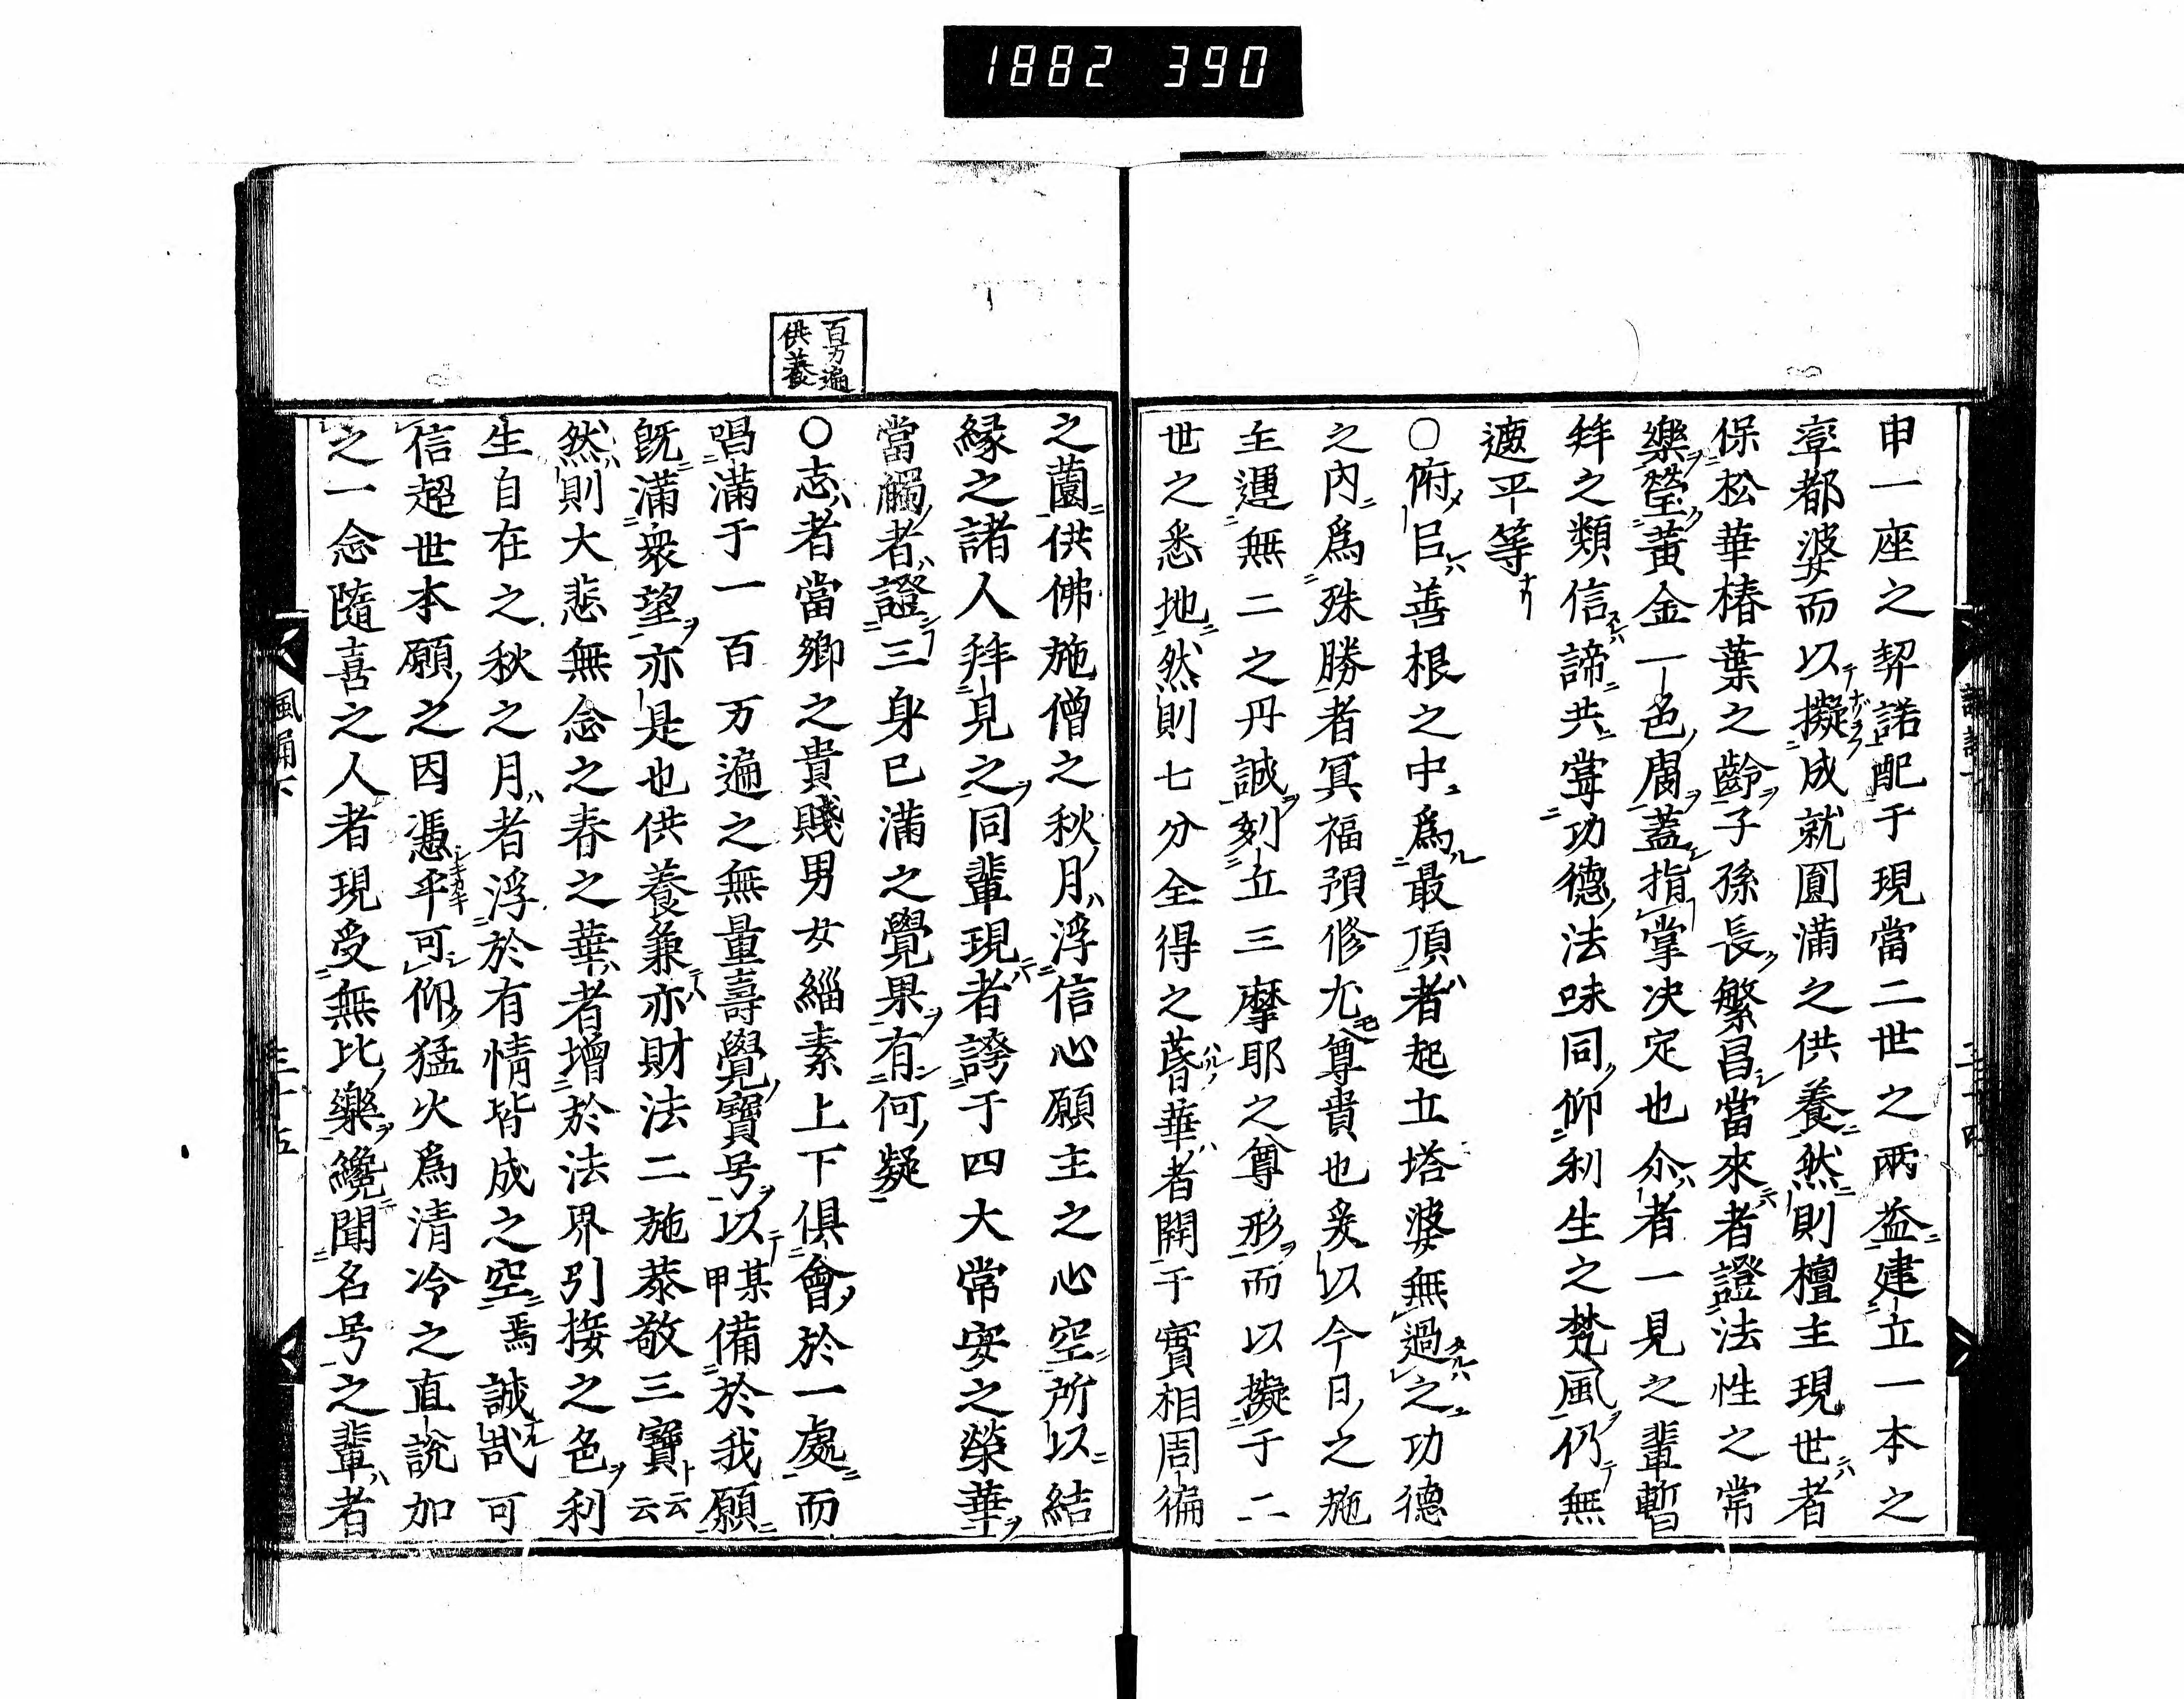 1882 390
申一座之契諾配于現當二世之兩益建立一本之
窣都婆而以擬成就圓滿之供養然則檀主現世者
保松華椿葉之齡子孫長繁昌當來者證法性之常
樂瑩黃金一色膚蓋指掌决定也尒者一見之輩暫
拜之類信謗共當功德法味同仰利生之梵風仍無
遮平等
〇俯㠯善根之中爲最頂者起立塔婆無過之功德
之内爲殊勝者冥福預修尤尊貴也爰以今日之施
主運無二之丹誠刻立三摩耶之尊形而以擬于二
世之悉地然則七分全得之蕣華者開于實相周徧
之薗供佛施僧之秋月浮信心願主之心空所以結
縁之諸人拜見之同輩現者誇于四大常安之榮華
當觸者證三身已滿之覺果有何疑
百万遍
供養
〇志者當鄉之貴賤男女緇素上下俱會於一處而
唱滿于一百万遍之無量壽覺寶号以某甲備於我願
既滿衆望亦是也供養兼亦財法二施恭敬三寶云云
然則大悲無念之春之華者增於法界引接之色利
生自在之秋之月者浮於有情皆成之空焉誠哉可
信超世本願之因憑乎可仰猛火爲清冷之直説加
之一念隨喜之人者現受無比樂纔聞名号之輩者
風誦下
三十五